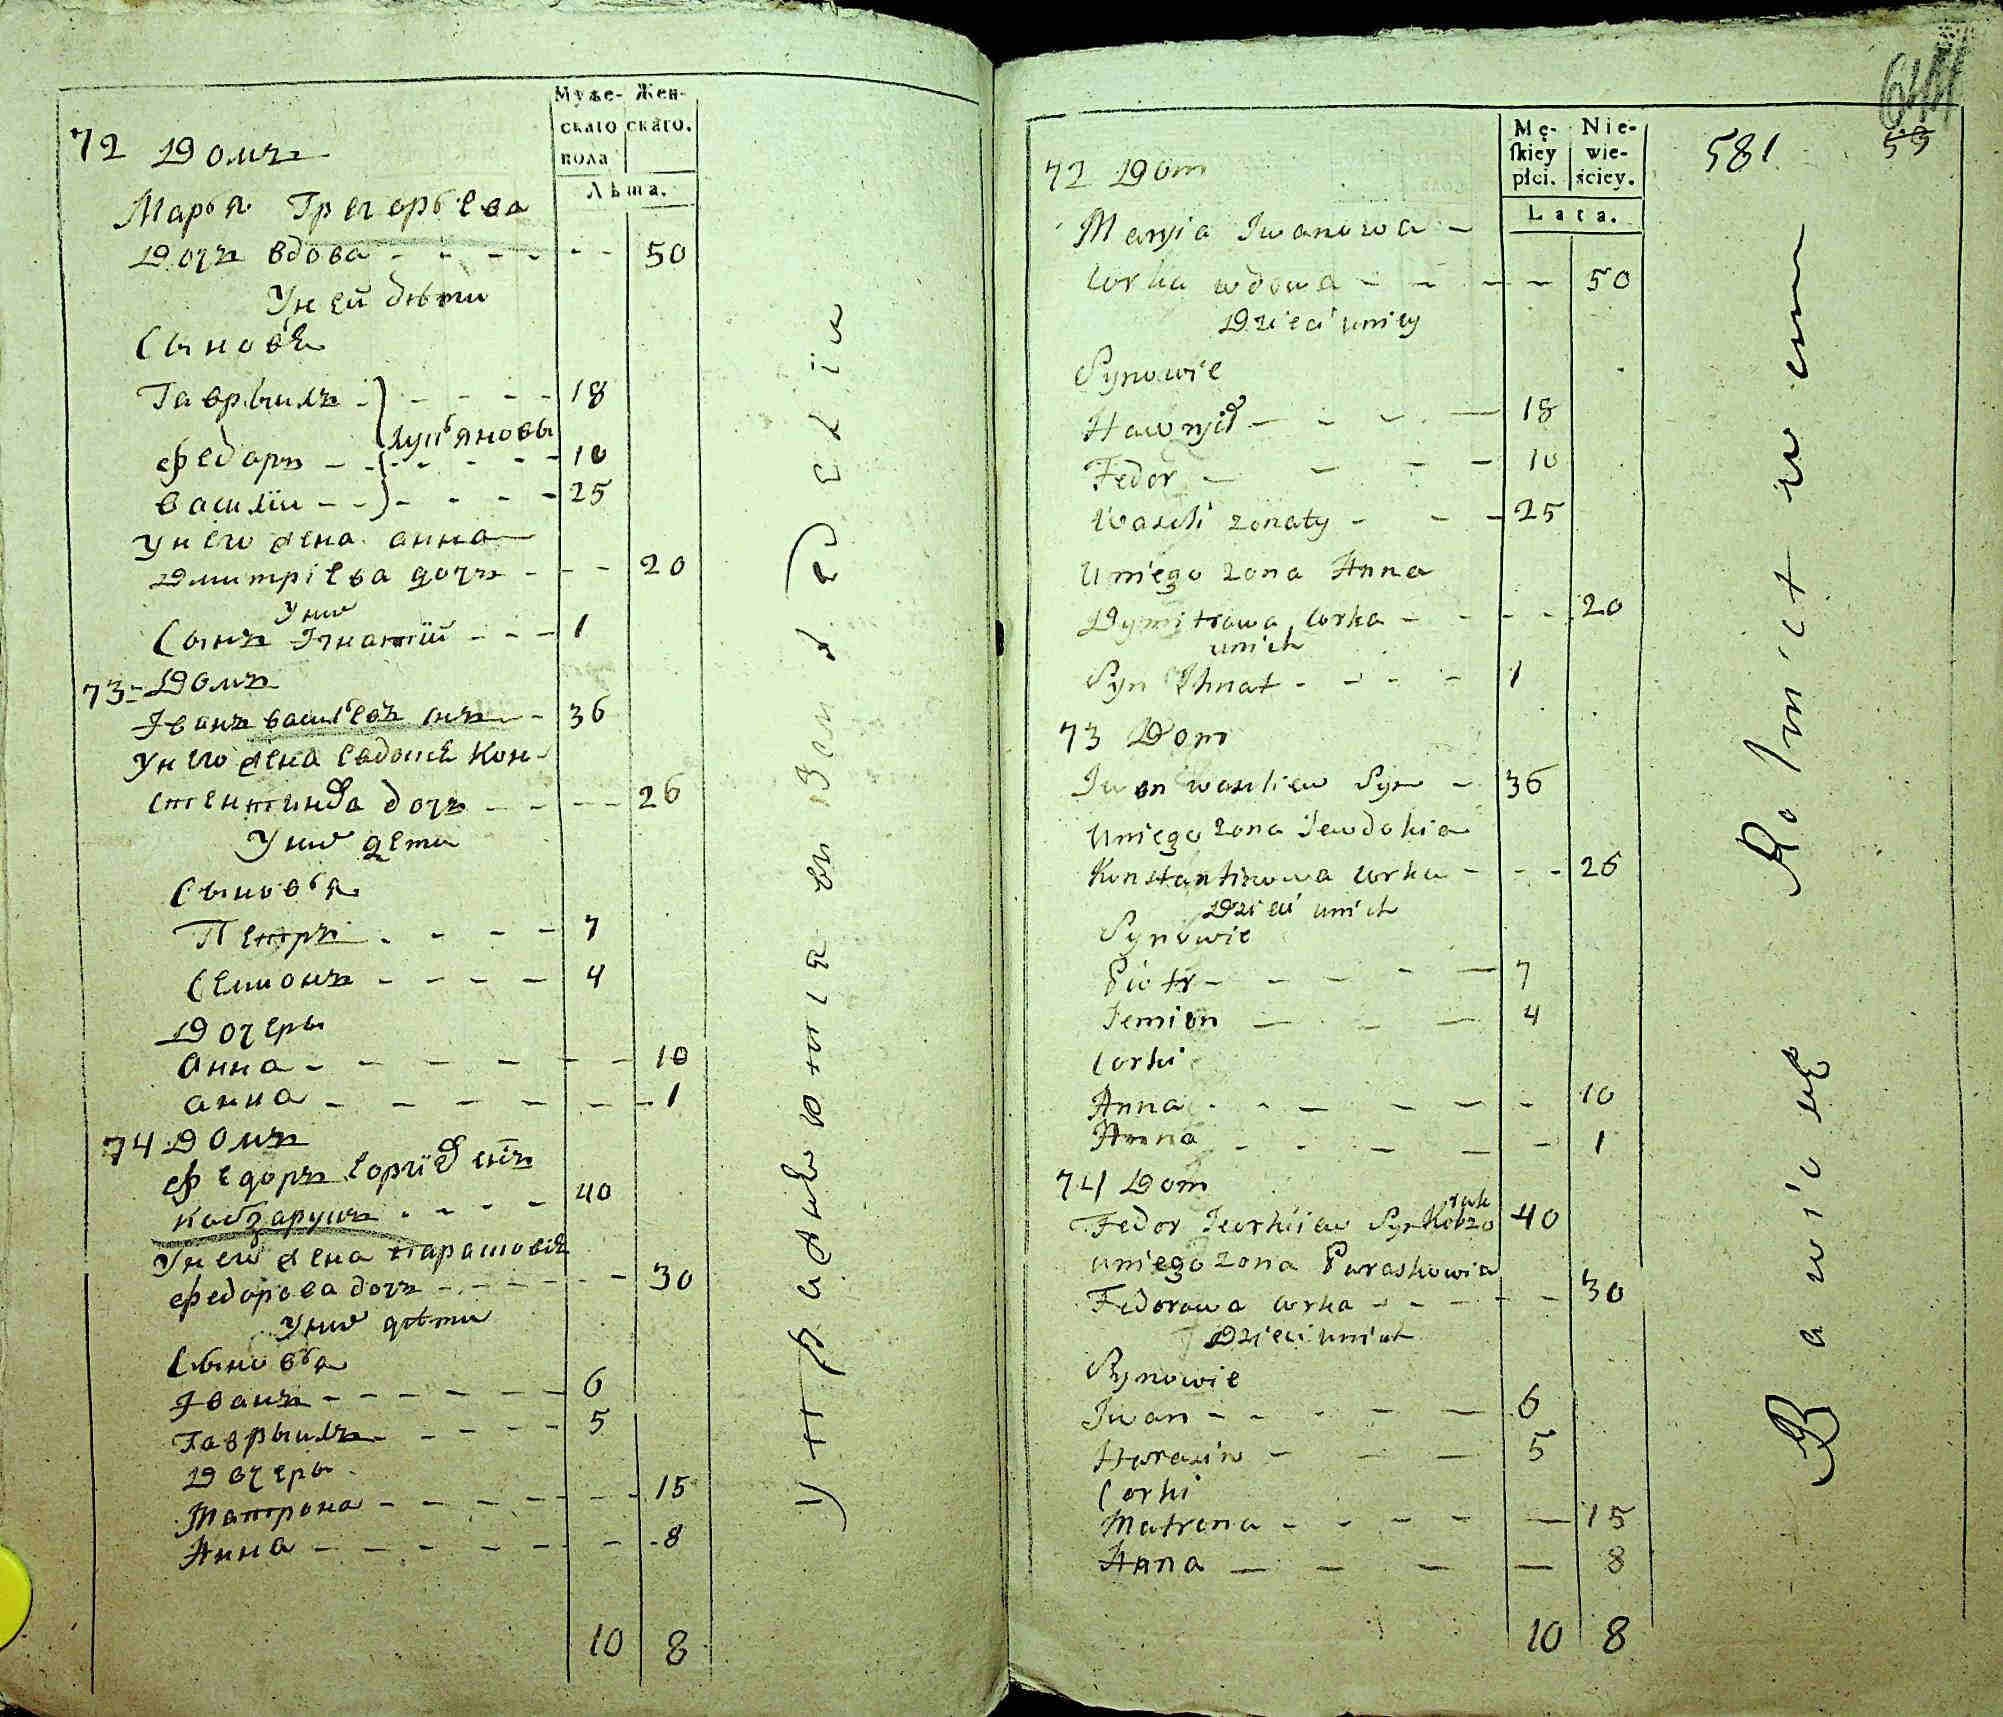 Муже- Жен-
скаго скаго.
пола
Лѣта.
72 Домъ
Марья Григорьева
Дочъ вдова - - - - - - 50
Уней дѣти
Сыновя
Гаврыилъ - - - - 18
Лупьяновы
Федоръ - - - - - 10
Василїи - - - - - 25
Унего жена анна
Дмитріева дочъ - - - 20
Уних
Сынъ Игнатїй - - - 1
73 - Домъ
Иванъ васильевъ снъ - 36
Унего жена Евдокия Кон-
стентинова дочъ - - - - 26
Уних дети
Сыновья
Петръ - - - - 7
Семионъ - - - - 4
Дочеры
Анна - - - - - - - 10
анна - - - - - - - 1
74 Домъ
Федоръ Еоргїев снъ
Кобзарукъ - - - - 40
Унего жена Парасковїя
Федорова дочъ - - - - - - 30
Уних дѣти
Сыновья
Иванъ - - - - - - 6
Гаврыилъ - - - - - 5
Дочеры
Матрона - - - - - - - 15
Анна - - - - - - - 8
10 8
Упражняются въ Земледелїи
644
59
581
Mę- Nie-
ſkiey wie-
płci. ściey.
Lata.
72 Dom
Maryia Iwanowa -
Corka wdowa - - - - 50
Dzieci uniey
Synowie
Hawryił - - - - - 18
Fedor - - - - 10
Wasili zonaty - - - 25
Uniego zona Anna
Dymitrowa Corka - - - - 20
unich
Syn Ihnat - - - - 1
73 Dom
Iwan wasiliew Syn - 36
Uniego zona Iewdokia
Konstantinowa Corka - - - 26
Dzieci unich
Synowie
Piotr - - - - - 7
Semion - - - 4
Corki
Anna - - - - - - 10
Anna - - - - - - 1
74 Dom
Fedor Ieorhiiew Syn Kobzo 40
ruk
uniego zona Paraskowia
Fedorowa Corka - - - - - 30
Dzieci unich
Synowie
Iwan - - - - - 6
- - - 5
Corki
Matrona - - - - - 15
Anna - - - - 8
10 8
Bawią się Rolnictwem